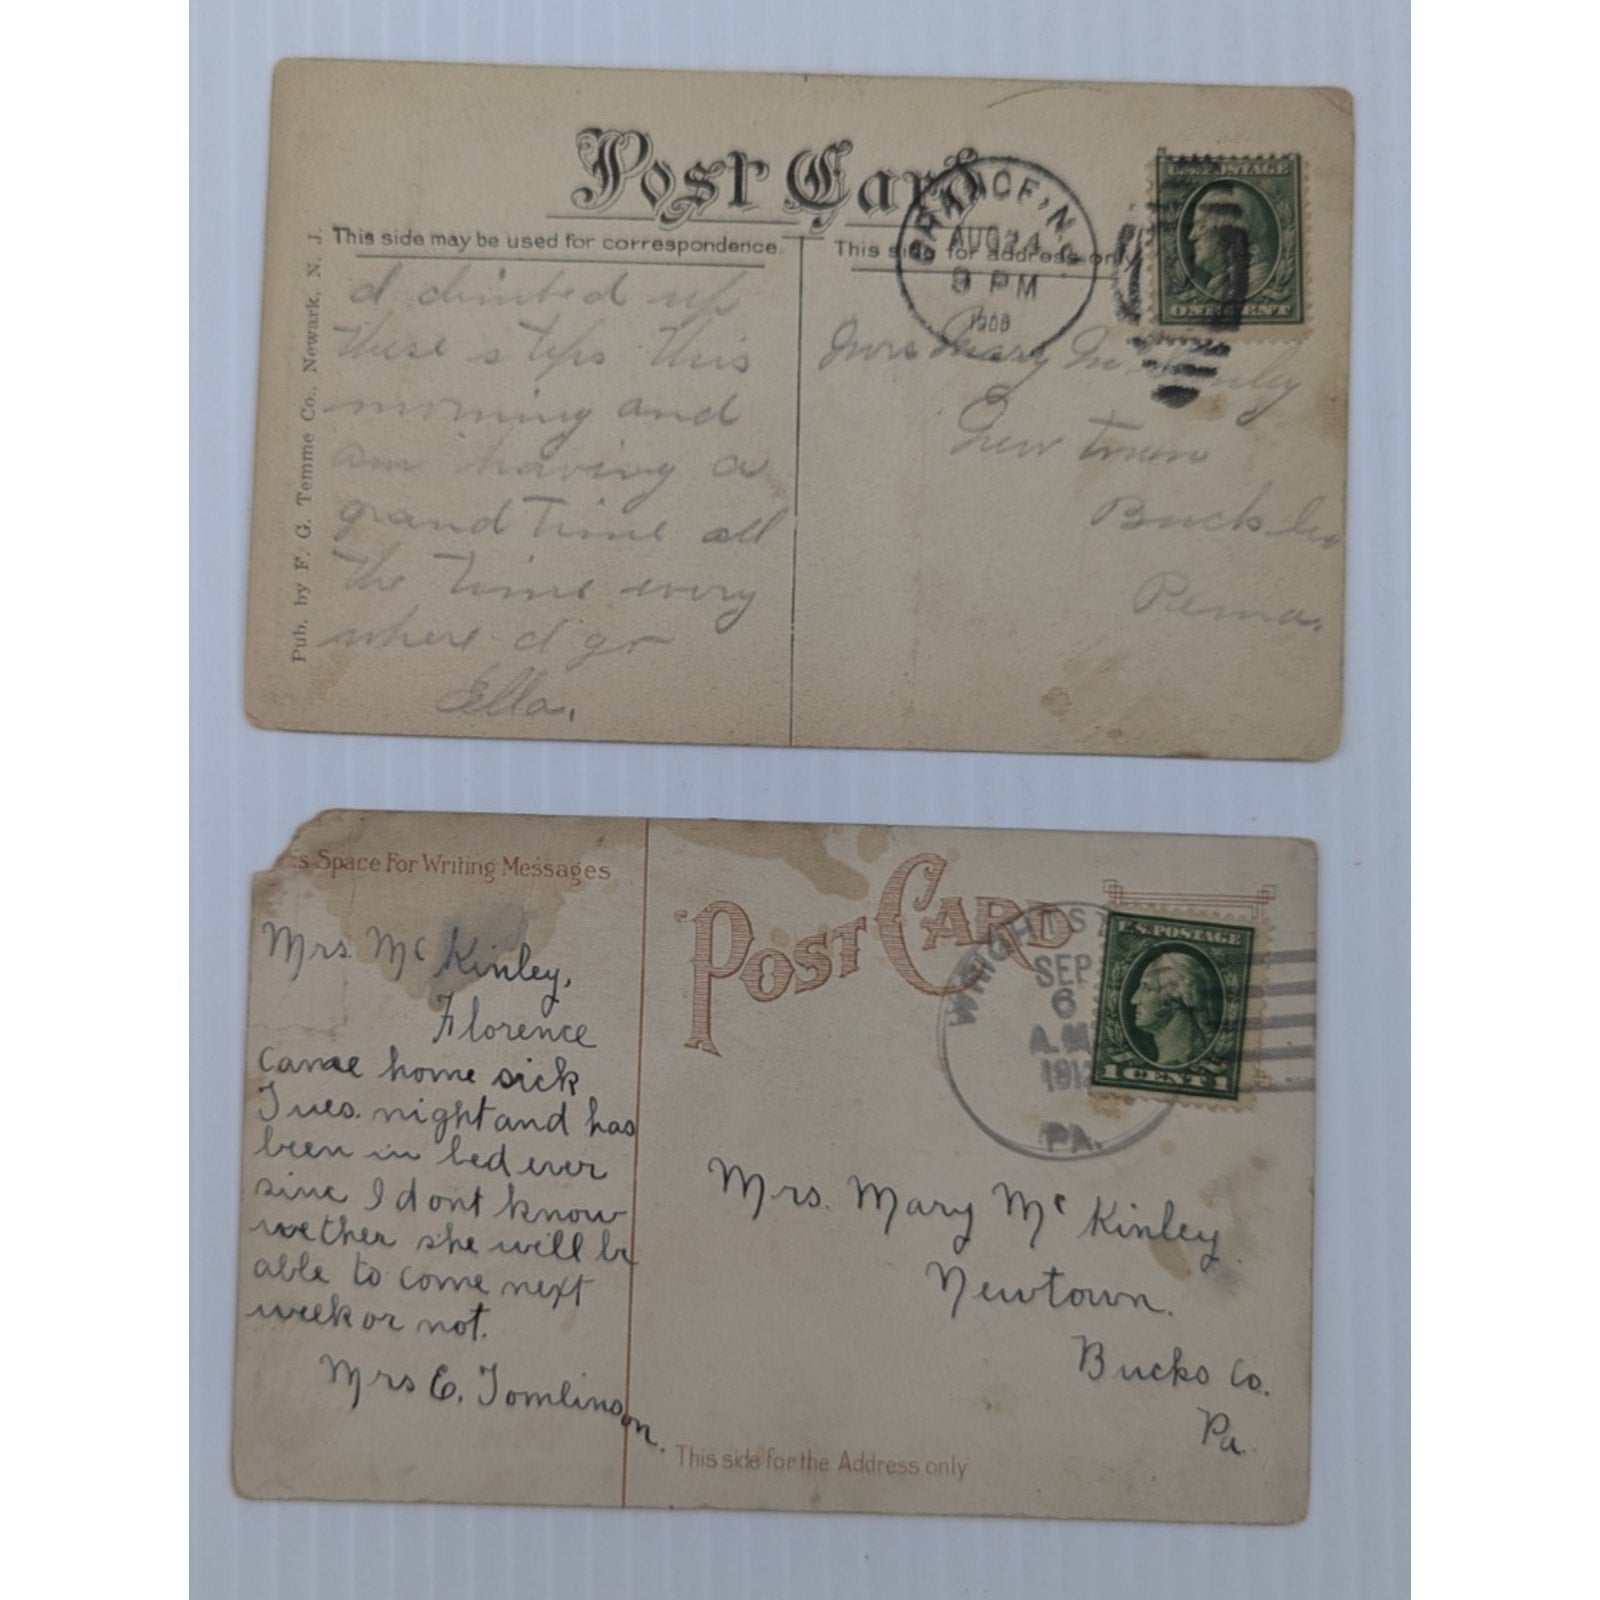 Post Card
This side may be used for correspondence.
This side for address only
ORANGE, N. J.
AUG 24
9 PM
1908
U.S. POSTAGE
ONE CENT
Pub. by F. G. Temme Co., Newark, N. J.
I climbed up
these steps this
morning and
am having a
grand time all
the time every
where I go
Ella.
Mrs Mary McKinley
New town
Bucks Co
Penna.
s Space For Writing Messages
POST CARD
WRIGHTST
SEP
6
A.M.
1912
PA.
U.S. POSTAGE
1 CENT 1
Mrs. Mc Kinley,
Florence
came home sick
Tues. night and has
been in bed ever
sinc I dont know
wether she will be
able to come next
week or not.
Mrs E. Tomlinson.
Mrs. Mary Mc Kinley
Newtown.
Bucks Co.
Pa.
This side for the Address only